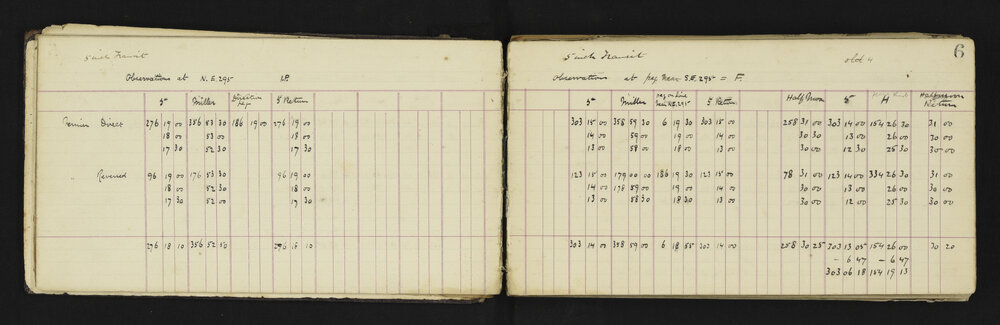 5 inch Transit
Observations at N.E. 295
5 Miller Direction peg 5 Return
Vernier Direct 276 19 00 356 53 30 186 19 00 276 19 00
18 00 53 00 18 00
17 30 52 30 17 30
" Reversed 96 19 00 176 53 30 96 19 00
18 00 52 30 18 00
17 30 52 00 17 30
276 18 10 356 52 50 276 18 10
5 inch Transit old 4 6
Observations at peg near S.E. 295 = F.
5 Miller peg on line near N.E. 295 5 Return Half Moon 5 H Half Moon Return
303 15 00 358 59 30 6 19 30 303 15 00 258 31 00 303 14 00 154 26 30 31 00
14 00 59 00 19 00 14 00 30 30 13 00 26 00 30 00
13 00 58 00 18 00 13 00 30 00 12 30 25 30 30 00
123 15 00 179 00 00 186 19 30 123 15 00 78 31 00 123 14 00 334 26 30 31 00
14 00 178 59 00 19 00 14 00 30 00 13 00 26 00 30 00
13 00 58 30 18 30 13 00 30 00 12 00 25 30 30 00
303 14 00 358 59 00 6 18 55 303 14 00 258 30 25 303 13 05 154 26 00 30 20
- 6 47 - 6 47
303 06 18 154 19 13